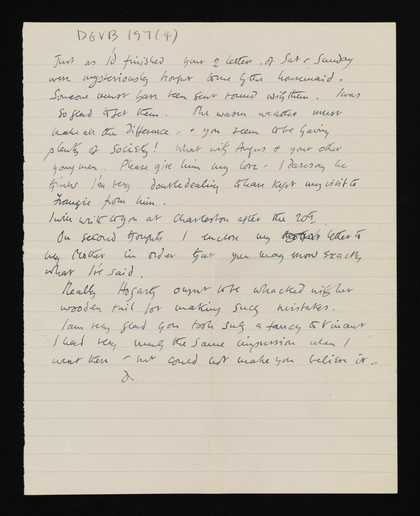 DGVB 197(4)
Just as I'd finished your 2 letters of Sat & Sunday
were mysteriously brought to me by the housemaid.
Someone must have been sent round with them. I was
so glad to get them. The warm weather must
make all the difference, & you seem to be having
plenty of society! What with Angus & your other
young men. Please give him my love. I daresay he
thinks I'm very double dealing to have kept my visit to
Frangie from him.
I will write to you at Charleston after the 20th.
On second thoughts I enclose my letter to
my Mother in order that you may know exactly
what I've said.
Really Hogarth ought to be whacked with her
wooden rail for making such mistakes.
I am very glad you took such a fancy to Vincent
I had very much the same impression when I
went there - but could not make you believe it -
D.